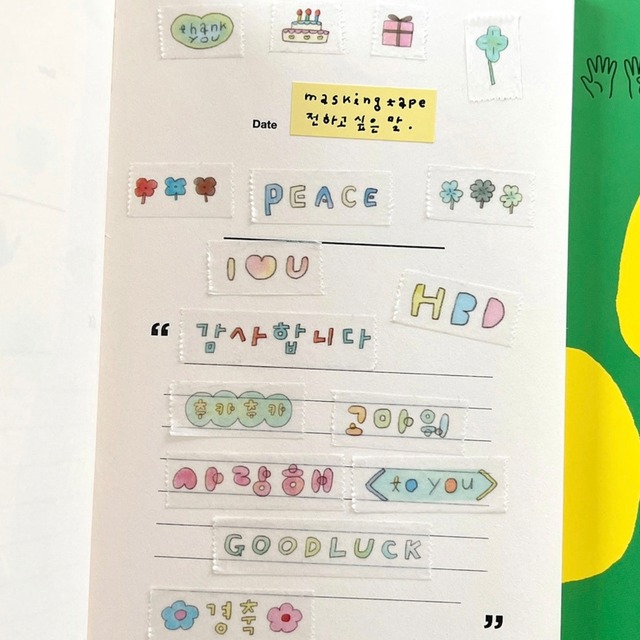 thank you
masking tape
전하고 싶은 말.
Date
PEACE
I ♡ U
HBD
“
감사합니다
축하축하
고마워
사랑해
to you
GOODLUCK
경축
”